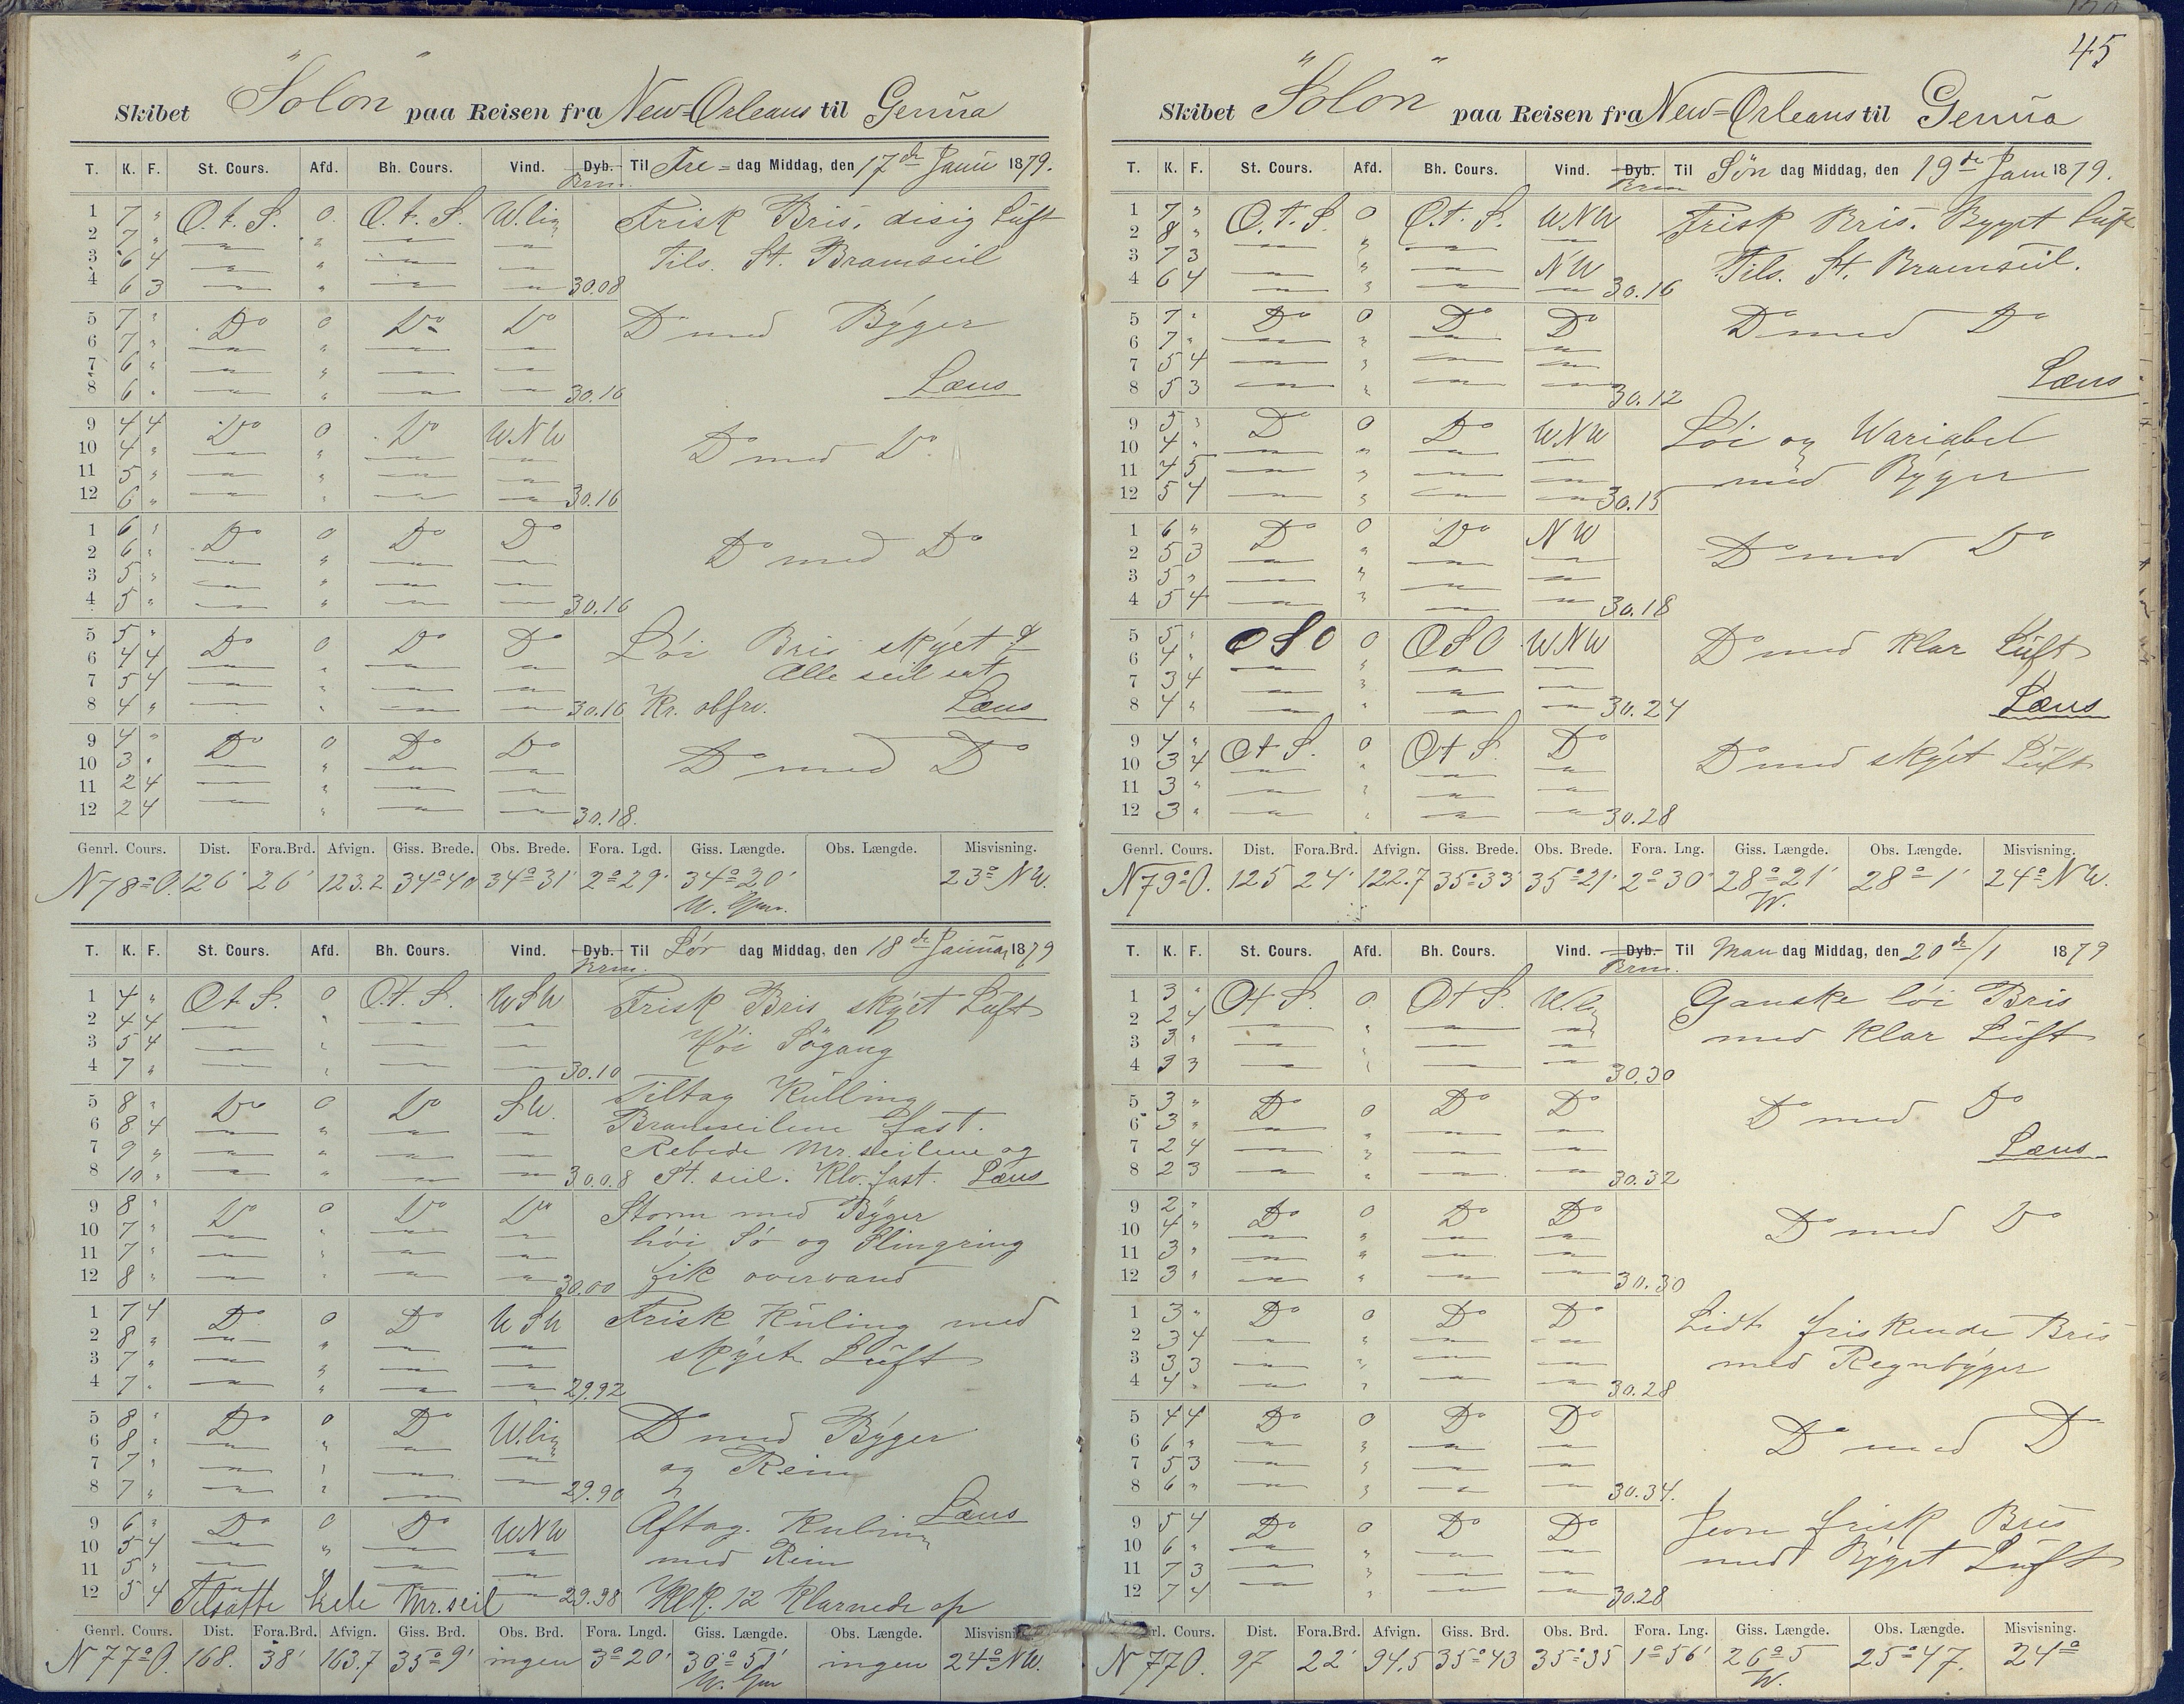 "Solon"
Skibet paa Reisen fra New=Orleans til Genua
T. K. F. St. Cours. Afd. Bh. Cours. Vind. Dyb. Til Fre= dag Middag, den 17de Janu 1879.
Brm.
1 7 " O.t.S. 0 O.t.S. W.lig Frisk Bris, disig Luft
2 7 " — " — —
3 6 4 — " — — Tils. St. Bramseil
4 6 3 — " — — 30.08
5 7 " Do 0 Do Do Do med Byger
6 7 " — " — —
7 6 " — " — —
8 6 " — " — — 30.16 Læns
9 4 4 Do 0 Do WNW
10 4 " — " — — Do med Do
11 5 " — " — —
12 6 " — " — — 30.16
1 6 " Do 0 Do Do
2 6 " — " — — Do med Do
3 5 " — " — —
4 5 " — " — — 30.16
5 5 " Do 0 Do Do Löi Bris skyet
6 4 4 — " — — Alle seil sat
7 5 4 — " — —
8 4 " — " — — 30.16 Kr. obsrv. Læns
9 4 " Do 0 Do Do
10 3 " — " — — Do med Do
11 2 4 — " — —
12 2 4 — " — — 30.18.
Genrl. Cours. Dist. Fora.Brd. Afvign. Giss. Brede. Obs. Brede. Fora. Lgd. Giss. Længde. Obs. Længde. Misvisning.
N78°O. 126' 26' 123.2 34°40 34°31' 2°29' 34°20' 23° NW.
T. K. F. St. Cours. Afd. Bh. Cours. Vind. Dyb. Til Lör dag Middag, den 18de Januar 1879
Brm.
1 4 " Ot S. 0 O.t.S. WSW Frisk Bris skyet Luft
2 4 4 — " — —
3 5 4 — " — — Höi Sögang
4 7 " — " — — 30.10
5 8 " Do 0 Do SW. Tiltag Kulling
6 8 4 — " — — Bramseilene fast.
7 9 " — " — — Rebede Mr. seilene og
8 10 " — " — — 30.0.8 St. seil. Klv. fast. Læns
9 8 " Do 0 Do Do Storm med Byger
10 7 " — " — — höi Sö og Slingring
11 7 " — " — —
12 8 " — " — — 30.00 fik overvand
1 7 4 Do 0 Do WSW Frisk Kuling med
2 8 " — " — —
3 7 " — " — — skyet Luft
4 7 " — " — — 29.92
5 8 " Do 0 Do W.lig Do med Byger
6 8 " — " — —
7 7 " — " — — og Rein
8 7 " — " — — 29.90
Læns
9 6 " Do 0 Do WNW Aftag. Kuling
10 5 4 — " — —
11 5 " — " — — med Rein
12 5 4 Tilsatte hele Mr.seil — 29.98 Klk. 12 klarnede op
Genrl. Cours. Dist. Fora.Brd. Afvign. Giss. Brd. Obs. Brd. Fora. Lngd. Giss. Længde. Obs. Længde. Misvisning.
N 77°O. 168. 38' 163.7 35°9' ingen 3°20' 30°51' ingen 24° NW.
45
"Solon"
Skibet paa Reisen fra New=Orleans til Genua
T. K. F. St. Cours. Afd. Bh. Cours. Vind. Dyb. Til Søn dag Middag, den 19de Janu 1879.
Brm
1 7 " O.t.S. 0 O.t.S. WNW Frisk Bris. Byget Luft
2 8 " — " — —
3 7 3 — " — NW Tils. St. Bramseil.
4 6 4 — " — — 30.16
5 7 " Do 0 Do Do Do med Do
6 7 " — " — —
7 5 4 — " — —
8 5 3 — " — — 30.12 Læns
9 5 " Do 0 Do WNW Löi og Wariabel
10 4 " — " — —
11 4 5 — " — — med Byger
12 5 4 — " — — 30.15
1 6 " Do 0 Do NW
2 5 3 — " — — Do med Do
3 5 " — " — —
4 5 4 — " — — 30.18
5 5 " OSO 0 OSO WNW Do med klar Luft
6 4 " — " — —
7 3 4 — " — —
8 4 " — " — — 30.24 Læns
9 4 " Ot S. 0 Ot S. Do
10 3 4 — " — — Do med skyet Luft
11 3 " — " — —
12 3 " — " — — 30.28
Genrl. Cours. Dist. Fora.Brd. Afvign. Giss. Brede. Obs. Brede. Fora. Lng. Giss. Længde. Obs. Længde. Misvisning.
N79°O. 125 24' 122.7 35°33' 35°21' 2°30' 28°21' 28°1' 24° NW.
W.
T. K. F. St. Cours. Afd. Bh. Cours. Vind. Dyb. Til Man dag Middag, den 20de/1 1879
Brm.
1 3 " Ot S. 0 Ot S. W.lig Ganske löi Bris
2 2 4 — " — —
3 3 " — " — — med klar Luft
4 3 3 — " — — 30.30
5 3 " Do 0 Do Do
6 3 " — " — — Do med Do
7 2 4 — " — — Læns
8 2 3 — " — — 30.32
9 2 " Do 0 Do Do
10 4 " — " — — Do med Do
11 3 " — " — —
12 3 " — " — — 30.30
1 3 " Do 0 Do Do Lidt friskende Bris
2 3 4 — " — —
3 3 3 — " — — med Regnbyger
4 4 " — " — — 30.28
5 4 4 Do 0 Do Do
6 6 " — " — — Do med Do
7 5 3 — " — —
8 6 " — " — — 30.34.
9 5 4 Do 0 Do Do Jevn frisk Bris
10 6 " — " — —
11 7 3 — " — — med Byget Luft
12 7 4 — " — — 30.28
rl. Cours. Dist. Fora.Brd. Afvign. Giss. Brd. Obs. Brd. Fora. Lng. Giss. Længde. Obs. Længde. Misvisning.
N 77O. 97 22' 94.5 35°43 35°35 1°56' 26°5 25°47. 24°
W.